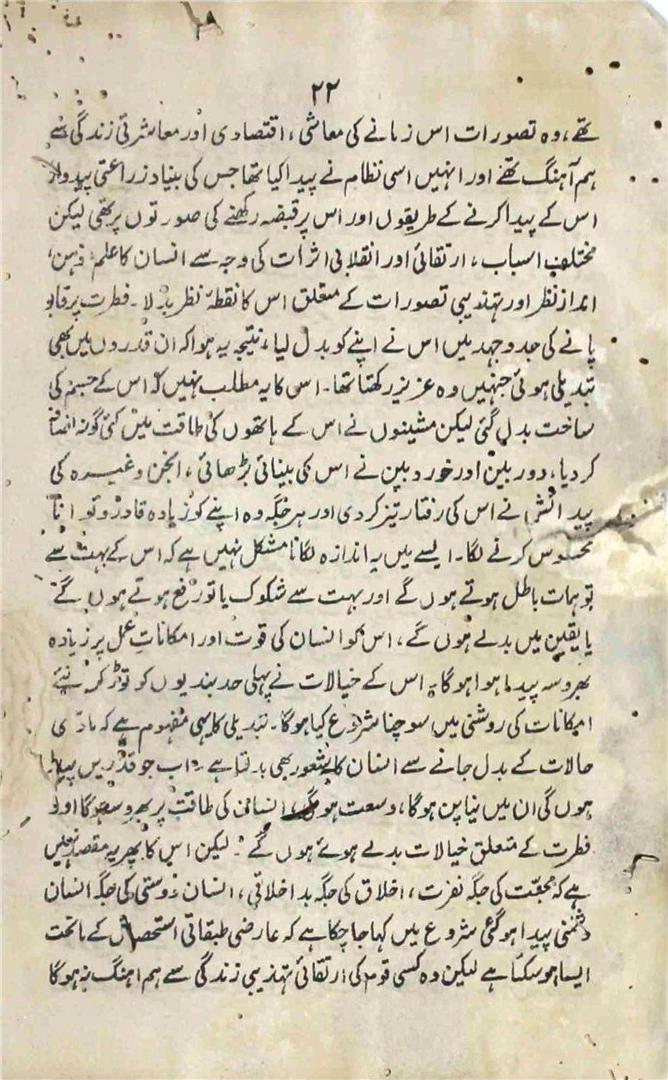 ۲۲
تھے، وہ تصورات اس زمانے کی معاشی، اقتصادی اور معاشرتی زندگی سے
ہم آہنگ تھے اور انہیں اسی نظام نے پیدا کیا تھا جس کی بنیاد زراعتی پیداوار
اس کے پیدا کرنے کے طریقوں اور اس پر قبضہ رکھنے کی صورتوں پر تھی لیکن
مختلف اسباب، ارتقائی اور انقلابی اثرات کی وجہ سے انسان کا علم، ذہن،
انداز نظر اور تہذیبی تصورات کے متعلق اس کا نقطۂ نظر بدلا۔ فطرت پر قابو
پانے کی جدوجہد میں اس نے اپنے کو بدل لیا، نتیجہ یہ ہوا کہ ان قدروں میں بھی
تبدیلی ہوئی جنہیں وہ عزیز رکھتا تھا۔ اس کا یہ مطلب نہیں کہ اس کے جسم کی
ساخت بدل گئی لیکن مشینوں نے اس کے ہاتھوں کی طاقت میں کئی گونہ اضافہ
کر دیا، دوربین اور خوردبین نے اس کی بینائی بڑھائی، انجن وغیرہ کی
پیدائش نے اس کی رفتار تیز کر دی اور ہر جگہ وہ اپنے کو زیادہ قادر و توانا
محسوس کرنے لگا۔ ایسے میں یہ اندازہ لگانا مشکل نہیں ہے کہ اس کے بہت سے
توہمات باطل ہوتے ہوں گے اور بہت سے شکوک یا تو رفع ہوتے ہوں گے
یا یقین میں بدلے ہوں گے، اس کو انسان کی قوت اور امکانات عمل پر زیادہ
بھروسہ پیدا ہوا ہوگا۔ اس کے خیالات نے پہلی حدبندیوں کو توڑ کر نئے
امکانات کی روشنی میں سوچنا شروع کیا ہوگا۔ تبدیلی کا یہی مفہوم ہے کہ مادّی
حالات کے بدل جانے سے انسان کا شعور بھی بدلتا ہے۔ اب جو قدریں پیدا
ہوں گی ان میں نیا پن ہوگا، وسعت ہوگی، انسانی کی طاقت پر بھروسہ ہوگا اور
فطرت کے متعلق خیالات بدلے ہوئے ہوں گے۔ لیکن اس کا پھر یہ مقصد نہیں
ہے کہ محبت کی جگہ نفرت، اخلاق کی جگہ بداخلاقی، انسان دوستی کی جگہ انسان
دشمنی پیدا ہوگئی شروع میں کہا جاچکا ہے کہ عارضی طبقاتی استحصال کے ماتحت
ایسا ہوسکتا ہے لیکن وہ کسی قوم کی ارتقائی تہذیبی زندگی سے ہم آہنگ نہ ہوگا